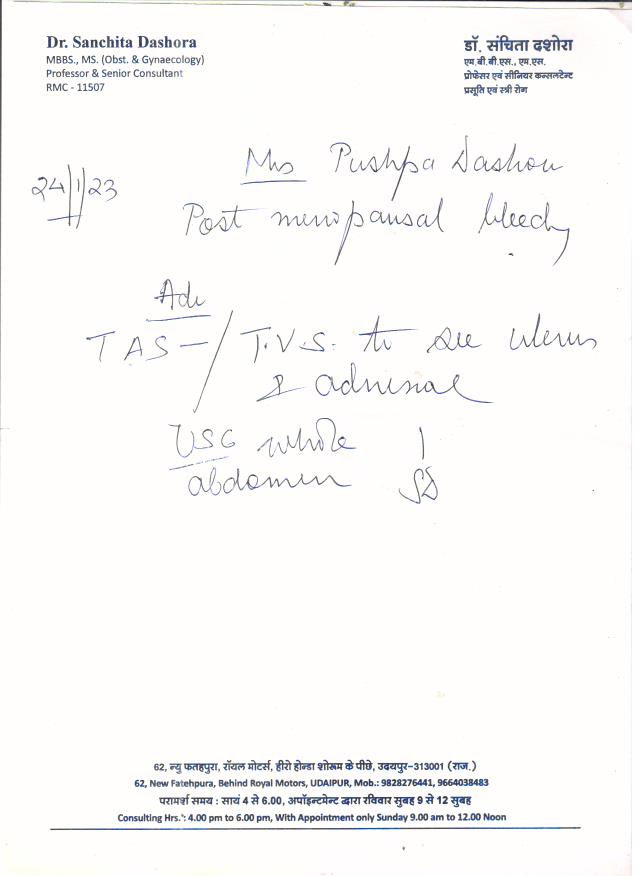 Dr. Sanchita Dashora
MBBS., MS. (Obst. & Gynaecology)
Professor & Senior Consultant
RMC - 11507
डॉ. संचिता दशोरा
एम.बी.बी.एस., एम.एस.
प्रोफेसर एवं सीनियर कन्सलटेन्ट
प्रसूति एवं स्त्री रोग
24/1/23
Mrs Pushpa Dashora
Post menopausal bleedg
Adv
TAS-/T.V.S. to see uterus
& adnexae
USG whole
abdomen
SD
62, न्यु फतहपुरा, रॉयल मोटर्स, हीरो होन्डा शोरूम के पीछे, उदयपुर-313001 (राज.)
62, New Fatehpura, Behind Royal Motors, UDAIPUR, Mob.: 9828276441, 9664038483
परामर्श समय : सायं 4 से 6.00, अपॉइन्टमेन्ट द्वारा रविवार सुबह 9 से 12 सुबह
Consulting Hrs.: 4.00 pm to 6.00 pm, With Appointment only Sunday 9.00 am to 12.00 Noon